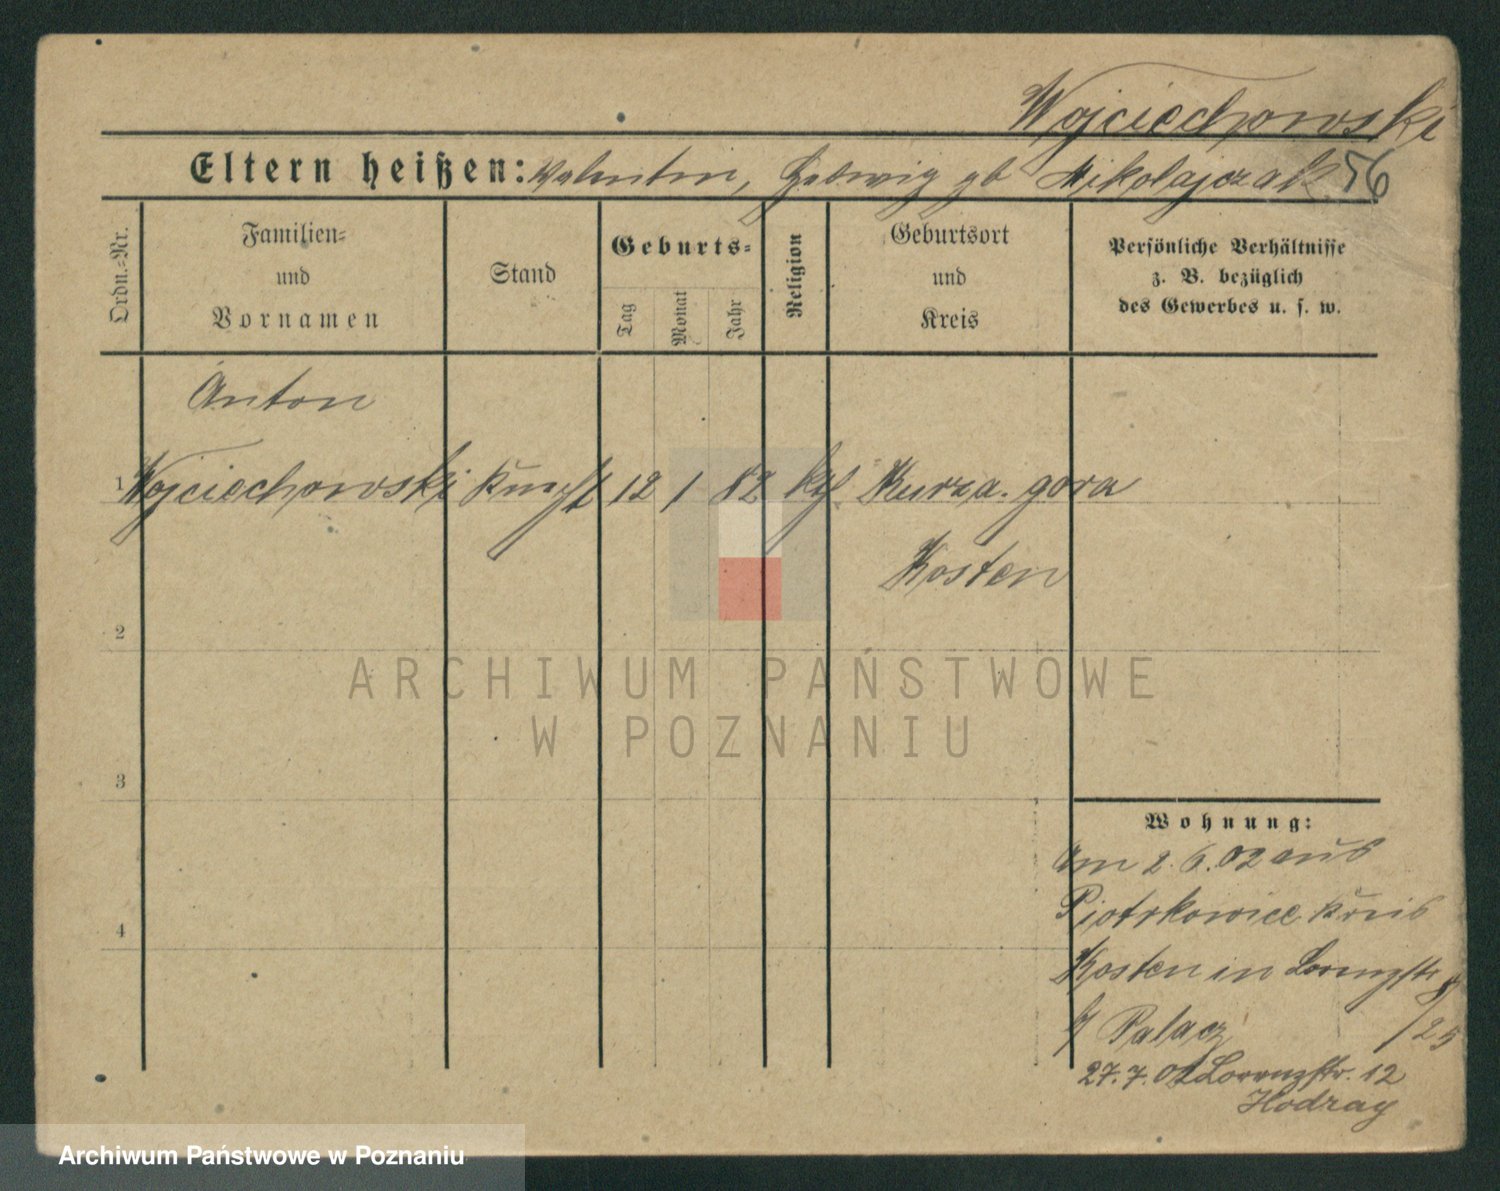 Wojciechowski
Eltern heißen: Valentin, Hedwig gb Mikolajczak 56
Ordn.-Nr.
Familien-
und
Vornamen
Stand
Geburts-
Tag
Monat
Jahr
Religion
Geburtsort
und
Kreis
Persönliche Verhältnisse
z. B. bezüglich
des Gewerbes u. s. w.
Anton
1 Wojciechowski Knecht 12 1 82 ktl Kurza-gora
Kosten
2
3
4
ARCHIWUM PAŃSTWOWE
W POZNANIU
Wohnung:
Am 2.6.02 aus
Piotrkowice Kreis
Kosten in Lorenzstr
b/ Palacz /25
27.7.02 Lorenzstr. 12
Hodray
Archiwum Państwowe w Poznaniu